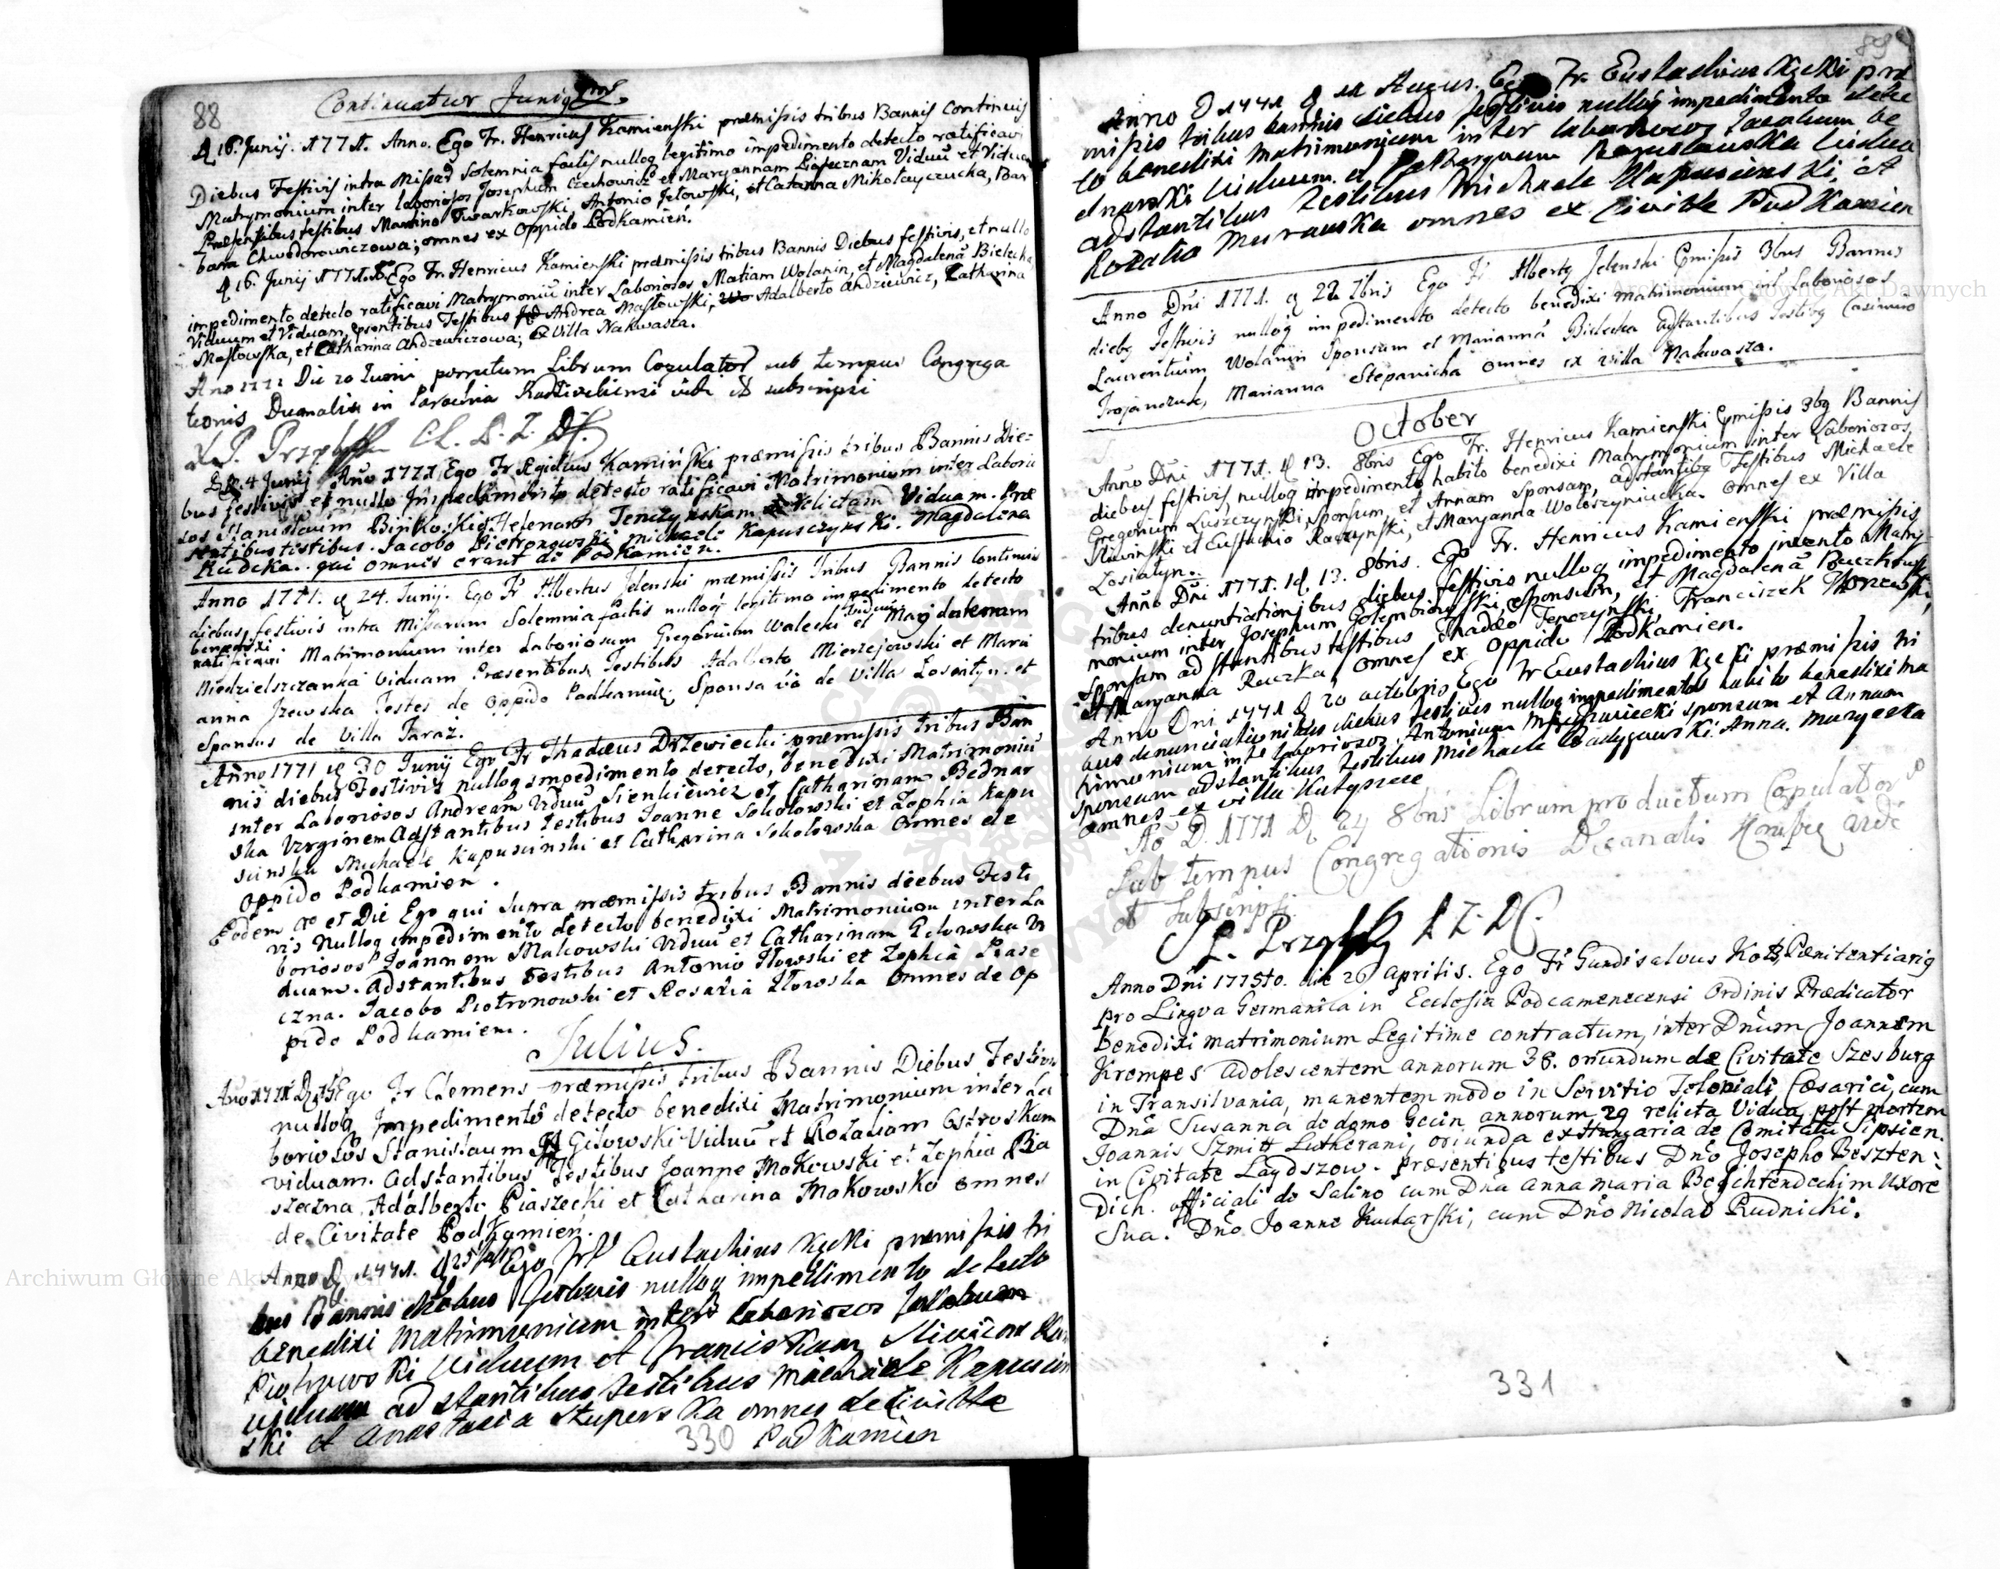 88
Continuatur Junius
D 16. Junij. 1771. Anno. Ego Fr. Henricus Kamienski præmissis tribus Bannis continuis
Diebus Festivis intra Missarũ Solemnia factis nulloq legitimo impedimento detecto ratificavi
Matrymonium inter laboriosos Josephum Czechowicz et Maryannam Viduũ et Viduam
Præsentibus testibus Martino Twarkowski, Antonio Jełowski, et Catarina Mikołayczucka, Bar
bara Chwodorowiczowa; omnes ex Oppido Podkamien.
D 16. Junij 1771. Ego Fr. Henricus Kamienski præmissis tribus Bannis Diebus festivis, et nullo
impedimento detecto ratificavi Matrymoniũ inter Laboriosos Matiam Wolanin, et Magdalenã Bielecka
Viduum et Viduam, psentibus Testibus Andrea Masłowski, Adalberto Andziewicz, Catharina
Masłowska, et Catharina Andzewiczowa; ex Villa Nakwasza.
Ano 1771 Die 20 Junii porrectum Librum Copulator sub tempus Congrega
tionis Decanalis in Parochia vidi et subscripsi
D. 4 Junij Ano 1771 Ego Fr Ægidius Kamiński præmissis tribus Bannis Die=
bus festivis et nullo Impedimento detecto ratificavi Matrimonium inter Laborio
sos Stanisławm Binkoski Helenam Tenczynskam Viduam. Præ
sentibus testibus. Jacobo Pietronowski Michaele Kapusczynski. Magdalena
Rudcka. qui omnis erant de Podkamien.
Anno 1771. D 24. Junij. Ego Fr Albertus Jelenski præmissis Tribus Bannis continuis
diebus festivis intra Missarum Solemnia factis nulloq legitimo impedimento detecto
ratificavi Matrimonium inter Laboriosum Gregorium Walecki viduũ et Magdalenam
Niedzielszczanka Viduam Præsentibus Testibus Adalberto Mierzejewski et Mari
anna Testes de oppido Podkamien Sponsa vò de Villa Łosentyn. et
Sponsus de Villa Taraż.
Anno 1771 D 30 Junij Ego Fr Thadæus Drzewiecki præmissis tribus Ban
nis diebus Festivis nulloq impedimento detecto, benedixi Matrimoniũ
inter Laboriosos Andream Viduũ Sienkiewicz et Catharinam Bednar
ska Virginem Adstantibus testibus Joanne Sokołowski et Zophia Kapu
scinska Michaele Kapuscinski et Catharina Sokołowska omnes de
oppido Podkamien.
Eodem Ao et Die Ego qui supra præmissis tribus Bannis diebus Festi
vis Nulloq impedimento detecto benedixi Matrimonium inter La
boriosos Joannem Makowski Viduũ et Catharinam Vi
duam. Adstantibus testibus Antonio Iłowski et Zophia Piase
czna. Jacobo Piotronowski et Rosaria Iłowska omnes de op
pido Podkamien.
Julius.
Ano 1771 D Ego Fr Clemens præmissis tribus Bannis Diebus Festivis
nulloq Impedimento detecto benedixi Matrimonium inter La
boriosos Stanisłaum Giłowski Viduũ et Rozaliam Ostroskam
viduam. Adstantibus Testibus Joanne Mokowski et Zophia Pia
szeczna, Adalberto Piaszecki et Catharina Makowska omnes
de Civitate Podkamien.
Anno D 1771. D 25 Ego Fr Eustachius Kęcki premissis tri
bus Bannis diebus festivis nulloq impedimento detecto
benedixi Matrimonium inter Laboriosos Jacobum
Piotrowski Viduum et Franciskam
viduam adstantibus Testibus Michaele Kapuscin
ski et Anastazia Stuperska omnes de Civitate
Podkamien
330
89
Anno D 1771 D 11 Augus. Ego Fr. Eustachius Kęcki præ
missis tribus bannis diebus festivis nulloq impedimento detec
to benedixi Matrimonium inter laboriosos Jacobum Be
dnarski Viduum et Bogusławska Vidua
adstantibus Testibus Michaele Kapuscinski, et
Rozalia Murawska omnes ex Civitte Podkamien
Anno Dñi 1771. D 22 7bris Ego Fr Albertq Jelenski pmissis 3bus Bannis
diebq Festivis nulloq impedimento detecto benedixi matrimonium int Laboriosos
Laurentium Wolanin Sponsum et Mariannã Bielecka adstantibus Testibq Casimiro
Trojanczuk, Marianna Stepanicha omnes ex villa Nakwasza.
October
Anno Dñi 1771. D 13. 8bris Ego Fr. Henricus Kamienski pmissis 3bq Bannis
diebus festivis, nulloq impedimento habito benedixi Matrymonium inter Laboriosos,
Gregorium Łuszczynski Sponsum, et Annam Sponsam, adstantibq Testibus Michaele
Sliwinski et Eustachio Raczynski, et Maryanna Wołoszyniucka. omnes ex Villa
Łosiatyn.
Anno Dñi 1771. D. 13. 8bris. Ego Fr. Henricus Kamienski præmissis
tribus denuntiationibus diebus festivis nulloq impedimento invento Matry-
monium inter Josephum Gołembiowski, Sponsum, et Magdalenã
Sponsam adstantibus testibus Thadeo Tenczynski, Franciszek
et Maryanna Raczka, omnes ex oppido Podkamien.
Anno Dni 1771 D 20 octobris Ego Fr Eustachius Kęcki præmissis tri
bus denunciationibus diebus festivis nulloq impedimento habito benedixi ma
trimonium inter laboriosos Antonium sponsum et Annam
sponsam adstantibus testibus Michaele Anna
omnes ex villa Kutyscze
Ao D. 1771 D. 24 8bris Librum productum Copulatorũ
sub tempus Congregationis Decanalis vidi
et subscripsi.
Anno Dñi 1775to. die 2 aprilis. Ego Fr Gundisalvus Kots, Pænitentiariq
pro Lingva Germanica in Ecclesia Podcamenecensi Ordinis Prædicator
Benedixi matrimonium Legitime contractum, inter Dñum Joannem
Krempes adolescentem annorum 38. oriundum de Civitate Szesburg
in Transilvania, manentem modo in Servitio Teloniali Cæsarici, cum
Dña Susanna de domo Gecin annorum 29 relicta Vidua post mortem
Joannis Szmitt Lutherani, oriunda ex Hungaria de Comitatu Sipsien.
in Civitate Laydszow. Præsentibus testibus Dño Josepho Beszten=
dich. officiali de Salino cum Dña Anna Maria Uxore
Sua. Dño Joanne Kucharski, cum Dño Nicolao Rudnicki.
331
Archiwum Główne Akt Dawnych
Archiwum Główne Akt Dawnych